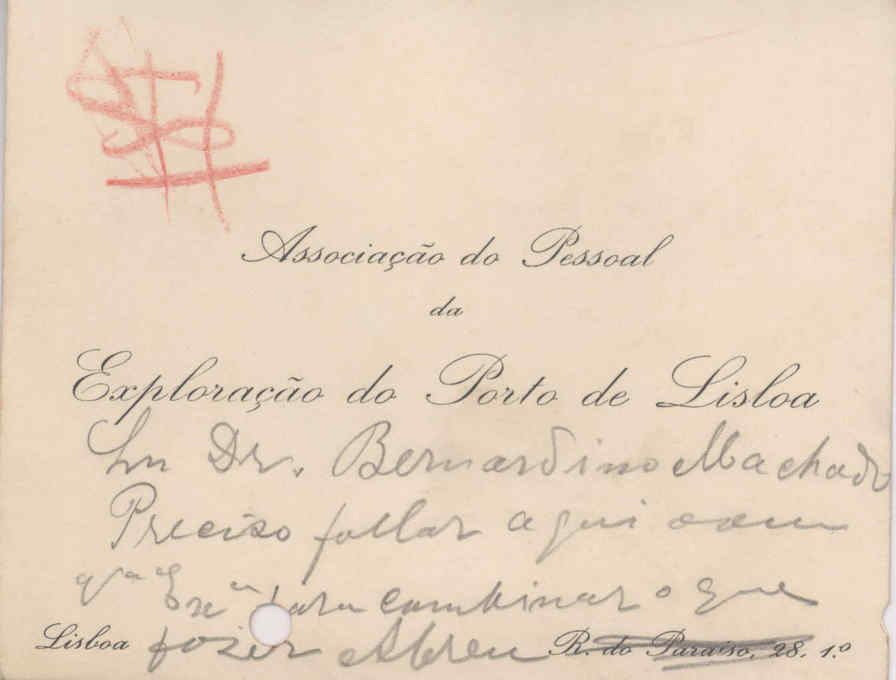 Associação do Pessoal
da
Exploração do Porto de Lisboa
Dr. Bernardino Machado
Preciso fallar aqui com
Exª para combinar o que
Lisboa fazer Abreu R. do Paraiso, 28. 1.º